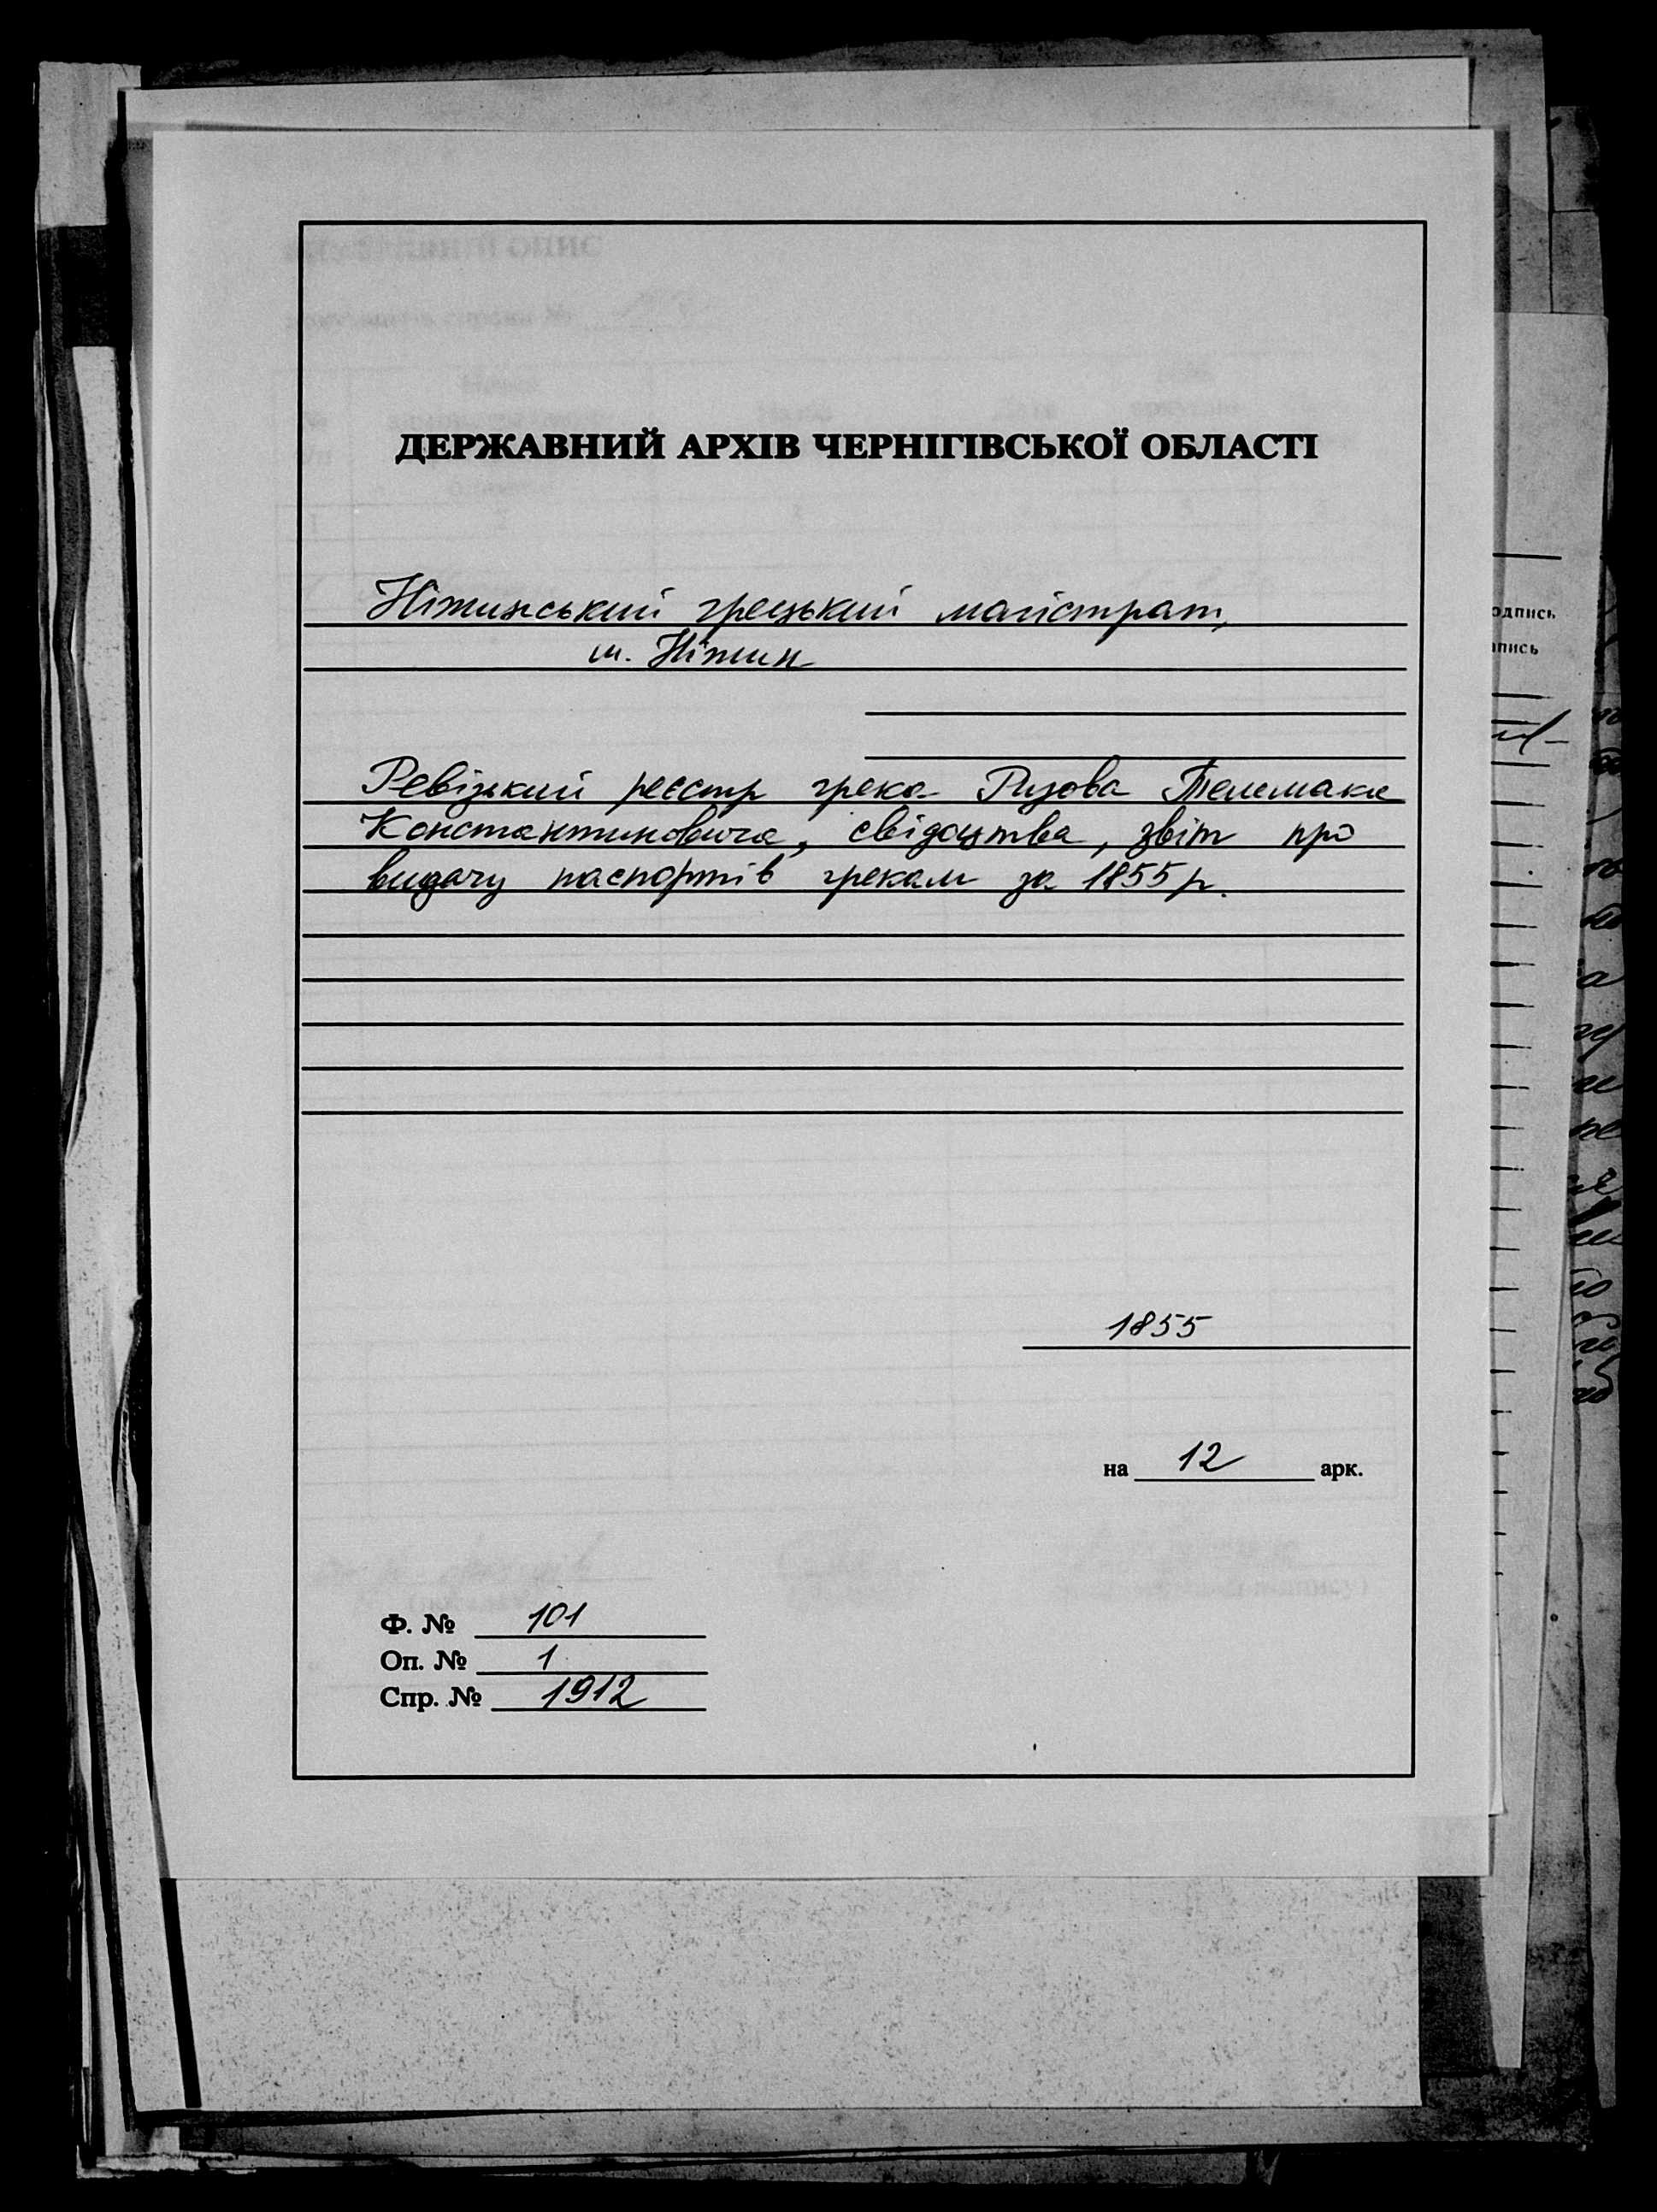 ДЕРЖАВНИЙ АРХІВ ЧЕРНІГІВСЬКОЇ ОБЛАСТІ
Ніжинський грецький магістрат,
м. Ніжин
Ревізький реєстр грека Ризова Телемака
Константиновича, свідоцтва, звіт про
видачу паспортів грекам за 1855 р.
1855
на 12 арк.
Ф. № 101
Оп. № 1
Спр. № 1912